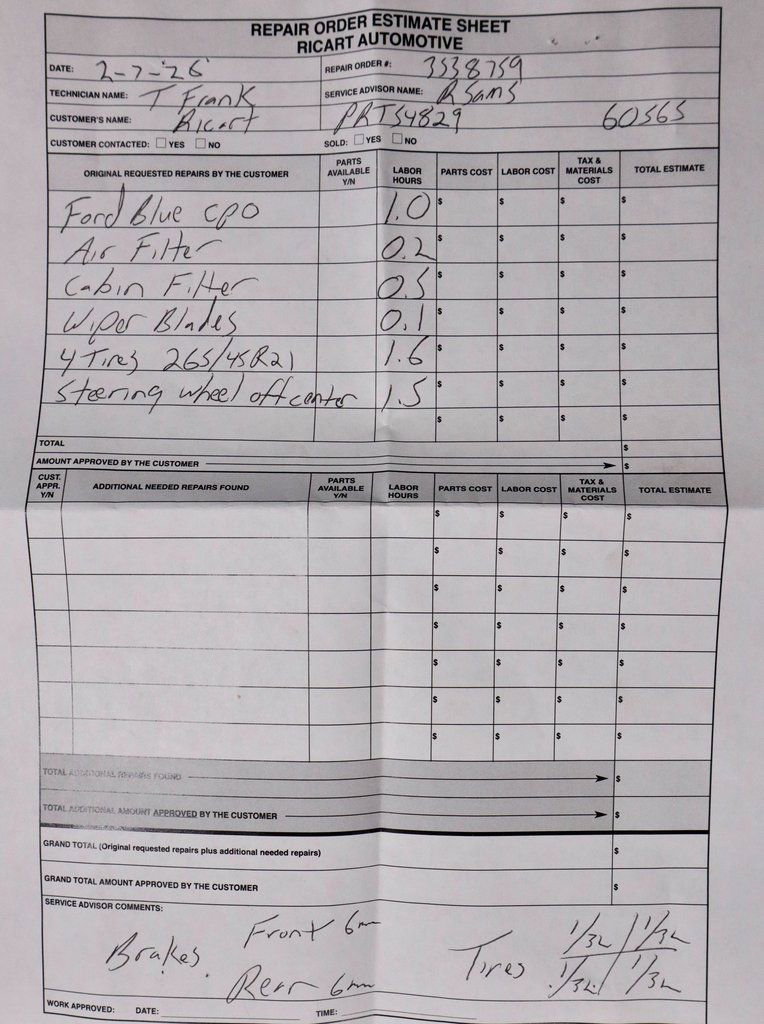 REPAIR ORDER ESTIMATE SHEET
RICART AUTOMOTIVE
DATE: 2-7-'26 REPAIR ORDER #: 3538759
TECHNICIAN NAME: T Frank SERVICE ADVISOR NAME: R Sams
CUSTOMER'S NAME: Ricart PRT54829 60565
CUSTOMER CONTACTED: YES NO SOLD: YES NO
ORIGINAL REQUESTED REPAIRS BY THE CUSTOMER PARTS AVAILABLE Y/N LABOR HOURS PARTS COST LABOR COST TAX & MATERIALS COST TOTAL ESTIMATE
Ford Blue CPO 1.0 $ $ $ $
Air Filter 0.2 $ $ $ $
Cabin Filter 0.5 $ $ $ $
Wiper Blades 0.1 $ $ $ $
4 Tires 265/45R21 1.6 $ $ $ $
Steering wheel off center 1.5 $ $ $ $
$ $ $ $
TOTAL $
AMOUNT APPROVED BY THE CUSTOMER $
CUST. APPR. Y/N ADDITIONAL NEEDED REPAIRS FOUND PARTS AVAILABLE Y/N LABOR HOURS PARTS COST LABOR COST TAX & MATERIALS COST TOTAL ESTIMATE
$ $ $ $
$ $ $ $
$ $ $ $
$ $ $ $
$ $ $ $
$ $ $ $
$ $ $ $
TOTAL ADDITIONAL REPAIRS FOUND $
TOTAL ADDITIONAL AMOUNT APPROVED BY THE CUSTOMER $
GRAND TOTAL (Original requested repairs plus additional needed repairs) $
GRAND TOTAL AMOUNT APPROVED BY THE CUSTOMER $
SERVICE ADVISOR COMMENTS:
Front 6mm 1/32 1/32
Brakes Tires
Rear 6mm 1/32 1/32
WORK APPROVED: DATE: TIME: